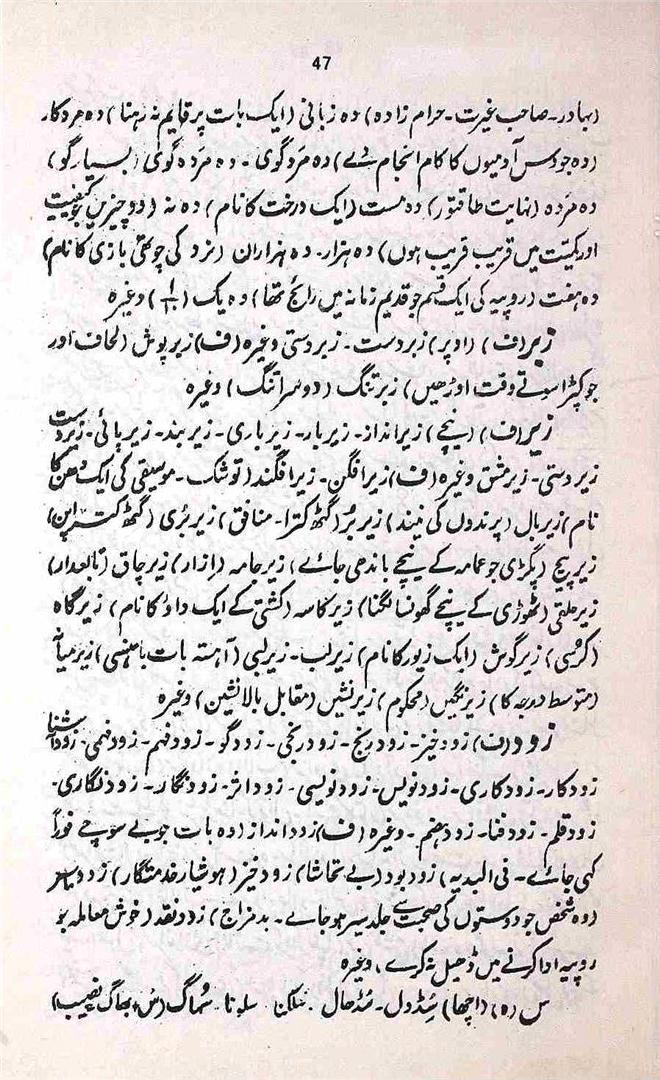 47
(بہادر۔ صاحب غیرت۔ حرام زادہ) دہ زبانی (ایک بات پر قایم نہ رہنا) دہ مرد کار
(وہ جو دس آدمیوں کا کام انجام دے) دہ مَرد گوی۔ دہ مَردہ گوی (بسیار گو)
دہ مَردہ (نہایت طاقتور) دہ مست (ایک درخت کا نام) دہ نہ (دو چیزیں جو کیفیت
اور کمیّت میں قریب قریب ہوں) دہ ہزار۔ دہ ہزاران (نرد کی چوتھی بازی کا نام)
دہ ہفت (روپیہ کی ایک قسم جو قدیم زمانہ میں رائج تھا) دہ یک وغیرہ
زبر (ف) (اوپر) زبردست۔ زبردستی وغیرہ (ف) زبر پوش (لحاف اور
جو کپڑا سوتے وقت اوڑھیں) زبر تنگ (دوسرا تنگ) وغیرہ
زیر (ف) (نیچے) زیر انداز۔ زیر بار۔ زیر باری۔ زیر بند۔ زیر پائی۔ زیر دست
زیر دستی۔ زیر مشق وغیرہ (ف) زیر افگن۔ زیر افگند (توشک۔ موسیقی کی ایک دُھن کا
نام) زیر بال (پرندوں کی نیند) زیر بُر (گٹھ کترا۔ منافق) زیر بُری (گٹھ کتراپن)
زیر پیچ (پگڑی جو عمامہ کے نیچے باندھی جائے) زیر جامہ (ازار) زیر چاق (تابعدار)
زیر حلقی (ٹھوڑی کے نیچے گھونسا لگنا) زیر کاسہ (کشتی کے ایک داؤ کا نام) زیر گاہ
(کرسی) زیر گوش (ایک زیور کا نام) زیر لب۔ زیر لبی (آہستہ بات یا ہنسی) زیر میانہ
(متوسط درجہ کا) زیر نگیں (محکوم) زیر نشیں (مقابل بالا نشین) وغیرہ
زود (ف) زود خیز۔ زود رنج۔ زود رنجی۔ زود گو۔ زود فہم۔ زود فہمی۔ زود آشنا
زود کار۔ زود کاری۔ زود نویس۔ زود نویسی۔ زود اثر۔ زود نگار۔ زود نگاری۔
زود قلم۔ زود فنا۔ زود ہضم۔ وغیرہ (ف) زود انداز (وہ بات جو بے سوچے فوراً
کہی جائے۔ فی البدیہہ) زود بود (بے تحاشا) زود خیز (ہوشیار خدمتگار) زود سیر
(وہ شخص جو دوستوں کی صحبت سے جلد سیر ہو جائے۔ بد مزاج) زود نقد (خوش معاملہ جو
روپیہ ادا کرنے میں ڈھیل نہ کرے، وغیرہ
س (ہ) (اچھا) سُڈول۔ سُڈھال۔ سلونا۔ سُہاگ